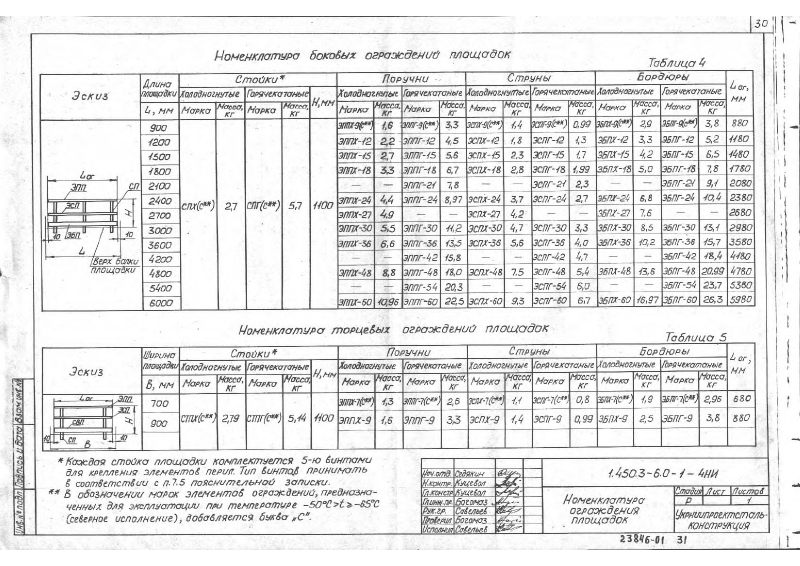 30
Номенклатура боковых ограждений площадок
Таблица 4
Эскиз | Длина площадки L, мм | Стойки* | H, мм | Поручни | Струны | Бордюры | Lог, мм
Холодногнутые | Горячекатаные | Холодногнутые | Горячекатаные | Холодногнутые | Горячекатаные | Холодногнутые | Горячекатаные
Марка | Масса, кг | Марка | Масса, кг | Марка | Масса, кг | Марка | Масса, кг | Марка | Масса, кг | Марка | Масса, кг | Марка | Масса, кг | Марка | Масса, кг
900 | ЭППХ-9(с**) | 1,6 | ЭППГ-9(с**) | 3,3 | ЭСПХ-9(с**) | 1,4 | ЭСПГ-9(с**) | 0,99 | ЭБПХ-9(с**) | 2,9 | ЭБПГ-9(с**) | 3,8 | 880
1200 | ЭППХ-12 | 2,2 | ЭППГ-12 | 4,5 | ЭСПХ-12 | 1,8 | ЭСПГ-12 | 1,3 | ЭБПХ-12 | 3,3 | ЭБПГ-12 | 5,2 | 1180
1500 | ЭППХ-15 | 2,7 | ЭППГ-15 | 5,6 | ЭСПХ-15 | 2,3 | ЭСПГ-15 | 1,7 | ЭБПХ-15 | 4,2 | ЭБПГ-15 | 6,5 | 1480
1800 | ЭППХ-18 | 3,3 | ЭППГ-18 | 6,7 | ЭСПХ-18 | 2,8 | ЭСПГ-18 | 1,99 | ЭБПХ-18 | 5,0 | ЭБПГ-18 | 7,8 | 1780
2100 | — | — | ЭППГ-21 | 7,8 | — | — | ЭСПГ-21 | 2,3 | — | — | ЭБПГ-21 | 9,1 | 2080
2400 | СПХ(с**) | 2,7 | СПГ(с**) | 5,7 | 1100 | ЭППХ-24 | 4,4 | ЭППГ-24 | 8,97 | ЭСПХ-24 | 3,7 | ЭСПГ-24 | 2,7 | ЭБПХ-24 | 6,8 | ЭБПГ-24 | 10,4 | 2380
2700 | ЭППХ-27 | 4,9 | — | — | ЭСПХ-27 | 4,2 | — | — | ЭБПХ-27 | 7,6 | — | — | 2680
3000 | ЭППХ-30 | 5,5 | ЭППГ-30 | 11,2 | ЭСПХ-30 | 4,7 | ЭСПГ-30 | 3,3 | ЭБПХ-30 | 8,5 | ЭБПГ-30 | 13,1 | 2980
3600 | ЭППХ-36 | 6,6 | ЭППГ-36 | 13,5 | ЭСПХ-36 | 5,6 | ЭСПГ-36 | 4,0 | ЭБПХ-36 | 10,2 | ЭБПГ-36 | 15,7 | 3580
4200 | — | — | ЭППГ-42 | 15,8 | — | — | ЭСПГ-42 | 4,7 | — | — | ЭБПГ-42 | 18,4 | 4180
4800 | ЭППХ-48 | 8,8 | ЭППГ-48 | 18,0 | ЭСПХ-48 | 7,5 | ЭСПГ-48 | 5,4 | ЭБПХ-48 | 13,6 | ЭБПГ-48 | 20,99 | 4780
5400 | — | — | ЭППГ-54 | 20,3 | — | — | ЭСПГ-54 | 6,0 | — | — | ЭБПГ-54 | 23,7 | 5380
6000 | ЭППХ-60 | 10,96 | ЭППГ-60 | 22,5 | ЭСПХ-60 | 9,3 | ЭСПГ-60 | 6,7 | ЭБПХ-60 | 16,97 | ЭБПГ-60 | 26,3 | 5980
Lог
ЭПП
СП
ЭСП
H
ЭБП
10
10
L
Верх балки площадки
Номенклатура торцевых ограждений площадок
Таблица 5
Эскиз | Ширина площадки B, мм | Стойки* | H, мм | Поручни | Струны | Бордюры | Lог, мм
Холодногнутые | Горячекатаные | Холодногнутые | Горячекатаные | Холодногнутые | Горячекатаные | Холодногнутые | Горячекатаные
Марка | Масса, кг | Марка | Масса, кг | Марка | Масса, кг | Марка | Масса, кг | Марка | Масса, кг | Марка | Масса, кг | Марка | Масса, кг | Марка | Масса, кг
700 | СТПХ(с**) | 2,79 | СТПГ(с**) | 5,14 | 1100 | ЭППХ-7(с**) | 1,3 | ЭППГ-7(с**) | 2,6 | ЭСПХ-7(с**) | 1,1 | ЭСПГ-7(с**) | 0,8 | ЭБПХ-7(с**) | 1,9 | ЭБПГ-7(с**) | 2,96 | 680
900 | ЭППХ-9 | 1,6 | ЭППГ-9 | 3,3 | ЭСПХ-9 | 1,4 | ЭСПГ-9 | 0,99 | ЭБПХ-9 | 2,5 | ЭБПГ-9 | 3,8 | 880
Lог
ЭПП
H
10
СП
10
B
* Каждая стойка площадки комплектуется 5-ю винтами
для крепления элементов перил. Тип винтов принимать
в соответствии с п.7.5 пояснительной записки.
** В обозначении марок элементов ограждений, предназна-
ченных для эксплуатации при температуре –50°С>t≥–65°С
(северное исполнение), добавляется буква „С".
Нач.отд. Седякин
Н.контр. Куцевол
Гл.констр Куцевол
Гл.инж.пр. Богомаз
Рук.гр. Савельев
Проверил Богомаз
Исполнил Савельев
1.450.3-6.0-1-4НИ
Номенклатура
ограждения
площадок
Стадия Лист Листов
Р 1
Укрниипроектсталь-
конструкция
23846-01 31
Инв.№подл. Подпись и дата Взам.инв.№